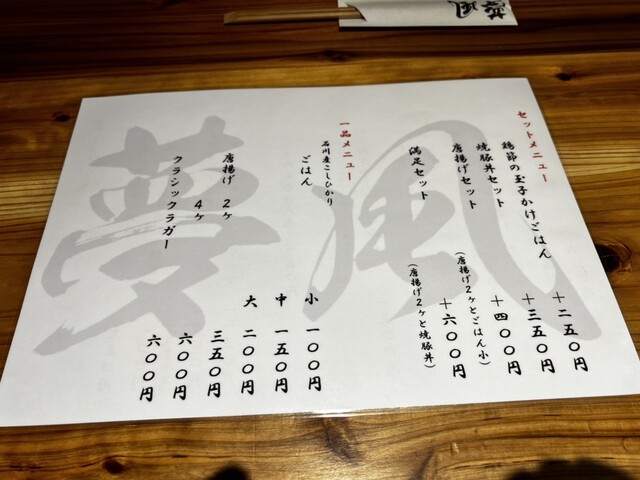 セットメニュー
鶏節の玉子かけごはん
＋二五〇円
焼豚丼セット
＋三五〇円
唐揚げセット
（唐揚げ2ヶとごはん小）
＋四〇〇円
満足セット
（唐揚げ2ヶと焼豚丼）
＋六〇〇円
一品メニュー
石川産こしひかり
ごはん
小 一〇〇円
中 一五〇円
大 二〇〇円
唐揚げ 2ヶ
三五〇円
4ヶ
六〇〇円
クラシックラガー
六〇〇円
夢風
夢風